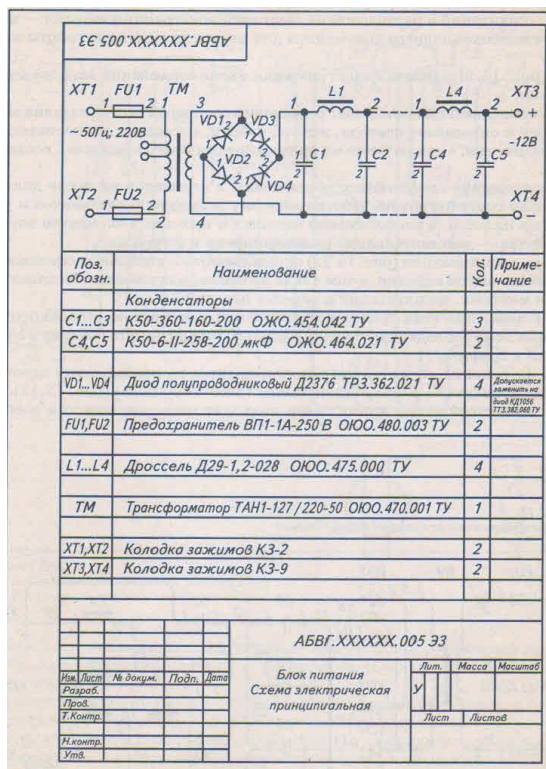 АБВГ.XXXXXX.005 ЭЗ
XT1 FU1 TM XT3
1 2 1 3 VD1 VD3 1 L1 2 1 L4 2
~ 50Гц; 220В
+
-12В
1 2 1 2
C1 C2 C4 C5
VD2
XT2 FU2 2 1 VD4 XT4
1 2 2 4
–
Поз. обозн. Наименование Кол. Приме-
чание
Конденсаторы
C1...C3 К50-360-160-200 ОЖО.454.042 ТУ 3
C4,C5 К50-6-II-258-200 мкФ ОЖО.464.021 ТУ 2
VD1...VD4 Диод полупроводниковый Д2376 ТР3.362.021 ТУ 4 Допускается
заменить на
диод КД1056
ТТ3.382.060 ТУ
FU1,FU2 Предохранитель ВП1-1А-250 В ОЮО.480.003 ТУ 2
L1...L4 Дроссель Д29-1,2-028 ОЮО.475.000 ТУ 4
ТМ Трансформатор ТАН1-127/220-50 ОЮО.470.001 ТУ 1
XT1,XT2 Колодка зажимов КЗ-2 2
XT3,XT4 Колодка зажимов КЗ-9 2
АБВГ.XXXXXX.005 ЭЗ
Изм. Лист № докум. Подп. Дата
Разраб.
Пров.
Т.Контр.
Н.контр.
Утв.
Блок питания
Схема электрическая
принципиальная
Лит. Масса Масштаб
У
Лист Листов